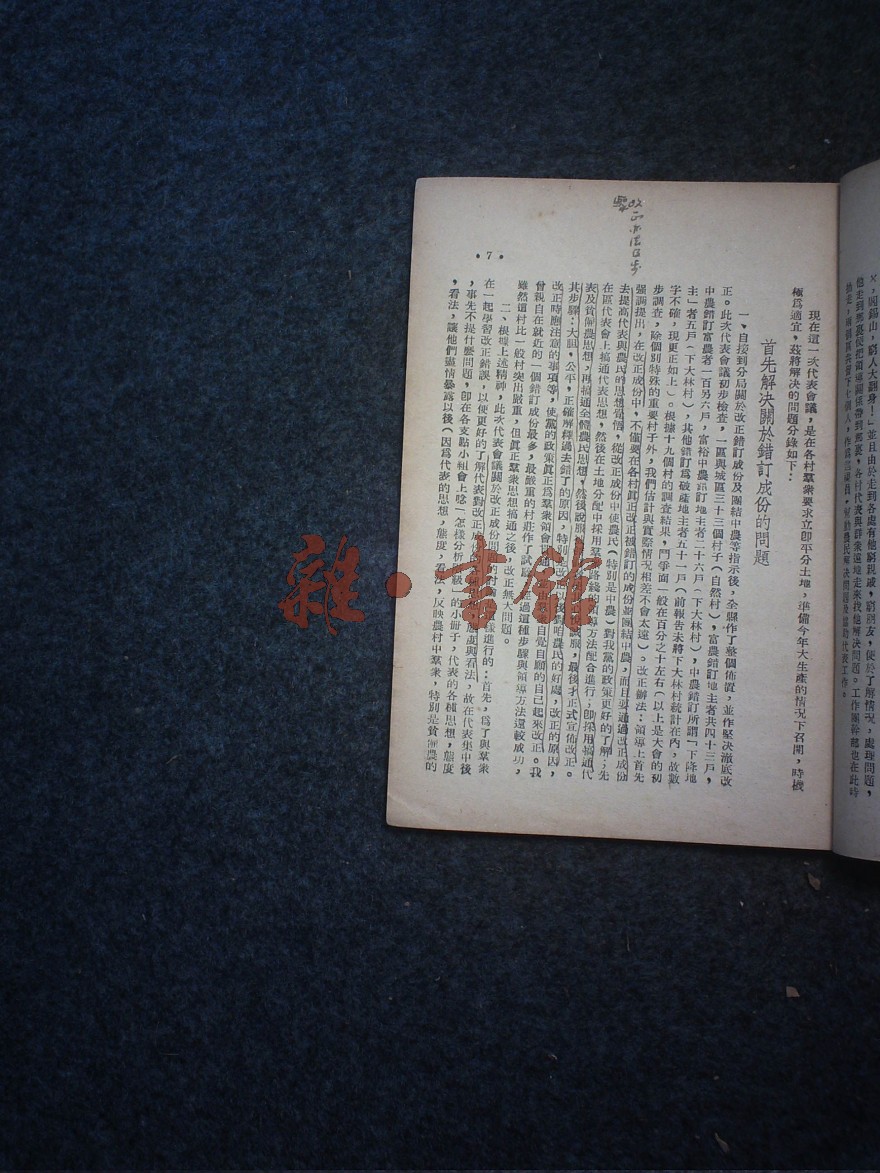 ×,閻錫山,窮人大翻身!」並且由於走到各處有他窮親戚,窮朋友,便於了解情況,處理問題,
他走到那裏便把領導關係帶到那裏,各村代表與群衆遠地走來找他解決問題。工作團幹部也在此時
現在這一次代表會議,是在各村羣衆要求立即平分土地,準備今年大生產的情況下召開,時機
極爲適宜,茲將解決的問題分錄如下:
首先解決關於錯訂成份的問題
一、自接到分局關於改正錯訂成份及團結中農等指示後,全縣作了整個佈置,並作堅決澈底改
正。此次代表會議初步檢查,一區與城區三十三個村子(自然村),富農錯訂地主者共四十三戶,
中農錯訂富農者一百另六戶,富裕中農錯訂地主者二十六戶(下大林村),中農錯訂所謂「下降地
主」者五戶(下大林村),其他錯訂爲破產地主者五十一戶(前報告未將下大林村統計在內,故數
字不確,現更正如上)。根據十九個村的調查結果,鬥爭面一般在百分之十左右(以上是大會的初
步調查,除個別特殊的重要村子外,我們估計與實際情況相差不會太遠)。改正辦法:領導上首先
強調提出,在改正成份中,不僅要在各村眞正改正被錯訂的成份並團結中農,而且要通過改正成份
去提高代表與農民的思想覺悟,從改正成份中使農民(特別是中農)對我黨的政策更好的了解;先
在區代表會上搞通代表思想,然後在土地分配中採用羣衆路綫的領導方法配合進行;卽採用搞通代
表及貧僱農思想,再搞通全體農民思想,然後說服被誠服,最後才正式宣佈改正。
其步驟:大胆,公平,正確解釋過去錯了的原因,特別是改對咱農民的好處,改正的原因,
改正時應注意的事項等,使黨的政策眞正爲羣衆領會自覺自願的自己起來改正。我
曾親自在就近的一個錯訂成份最多,最嚴重的村莊作了試驗,經過這種步驟與領導方法還較成功,
雖然這村比一般村突出嚴重,但眞正羣衆思想搞通之後,改正無大問題。
二、根據上述精神,此次代表會議關於改正成份問題樣進行的:首先,爲了與羣衆
在一起學習改正錯誤,以便更好的了解代表對改正成份的態度與看法,故在代表集中後
,事先不提什麼問題,卽在各支點小組會上唸「怎樣分析階級」的小冊子,代表的各種思想,態度
,看法,讓他們盡情暴露以後(因爲代表的思想,態度,看法,反映農村中羣衆,特別是貧僱農的
·7·
雜·書館